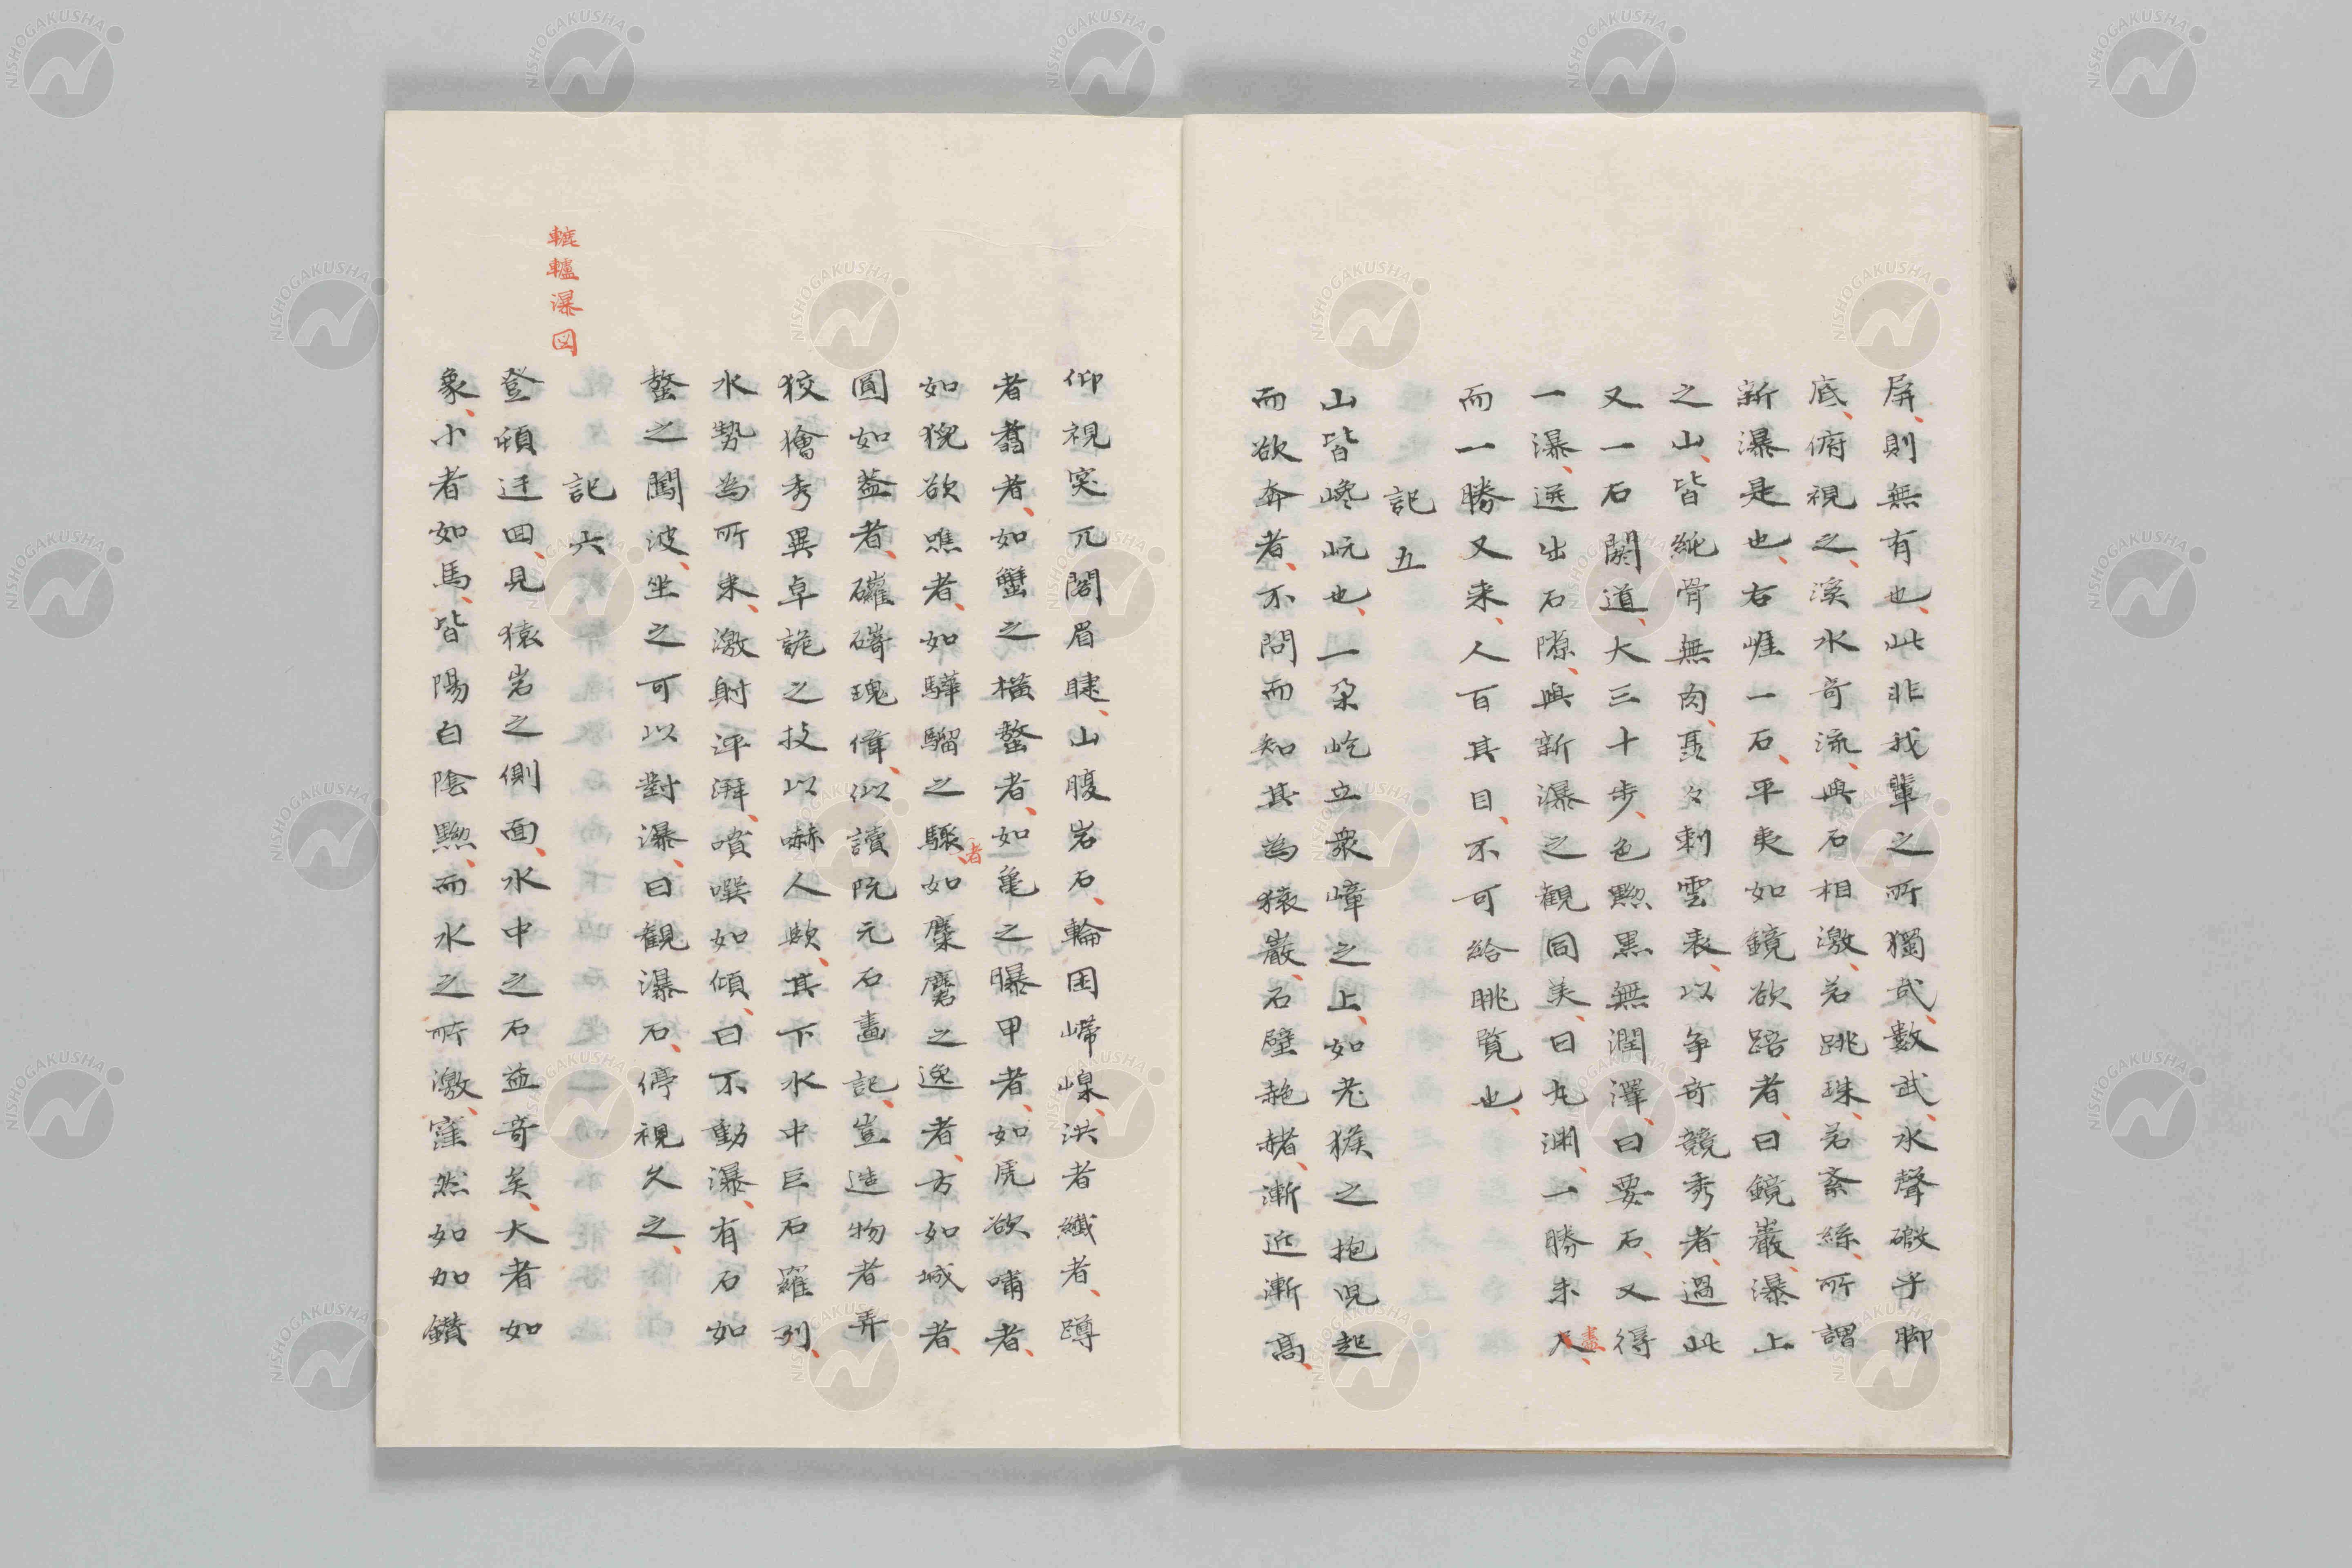 屏、則無有也、此非我輩之所獨哉、數武、水聲磤乎脚
底、俯視之、溪水奇流、與石相激、若跳珠、若紊絲、所謂
新瀑是也、右崕一石、平夷如鏡欲踣者、曰鏡巖、瀑上
之山、皆純骨無肉、聶々刺雲表、以争奇競秀者、過此
又一石闕道、大三十步、色黝黒無潤澤、曰要石、又得
一瀑、迸出石隙、與新瀑之觀同美、曰丸渊、一勝未盡入、
而一勝又来、人百其目、不可給眺覧也、
記五
山皆巉岏也、一朶屹立衆嶂之上、如老猴之抱児起
而欲奔者、不問而知其為猿巌、石壁赩赭、漸近漸高、
仰視突兀閣眉睫、山腹岩石、輪囷嵽嵲、洪者纎者、蹲
者翥者、如蟹之横螯者、如亀之曝甲者、如虎欲嘯者、
如猊欲噍者、如驊騮之驟者如麋麏之逸者、方如城者、
圓如蓋者、礶礚瑰偉、似讀阮元石畫記、豈造物者弄
狡獪秀異卓詭之技以嚇人歟、其下水中巨石羅列、
水勢為所束、激射泙湃、噴噀如傾、曰不動瀑、有石如
螯之闖波、坐之可以對瀑、曰観瀑石、停視久之、
轆轤瀑図
記六
登頓迂回、見猿岩之側面、水中之石益奇矣、大者如
象、小者如馬、皆陽白陰黝、而水之所激、窪然如加鑚